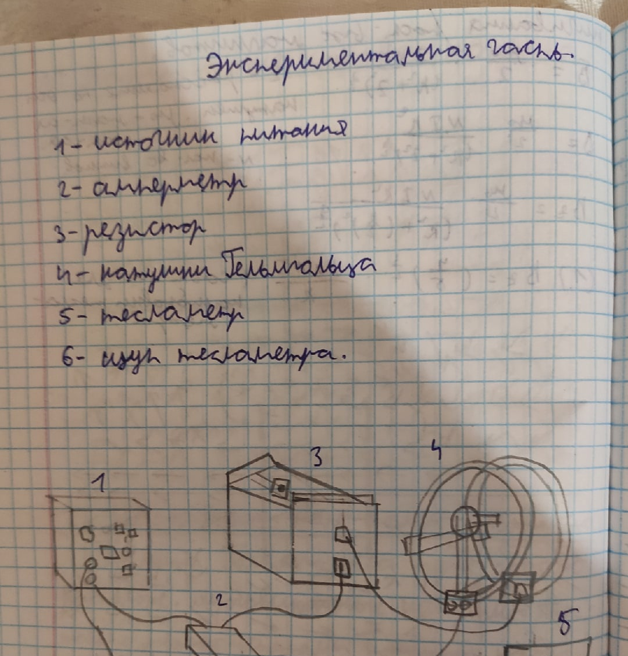 Экспериментальная часть.
1- источник питания
2- амперметр
3- резистор
4- катушки Гельмгольца
5- тесламетр
6- щуп тесламетра.
1
3
4
2
5